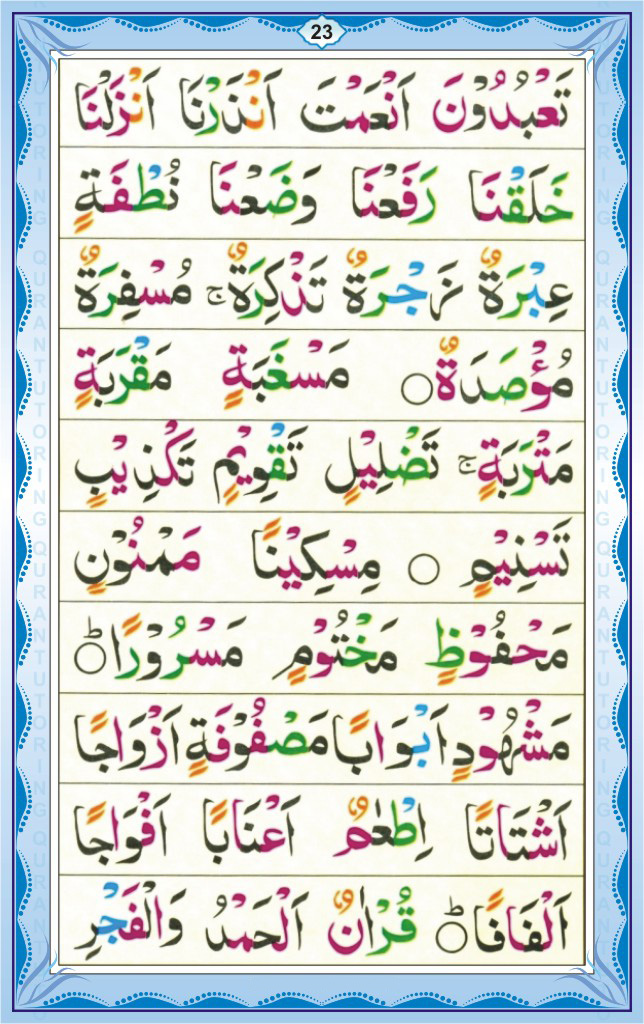 23
تَعْبُدُوْنَ اَنْعَمْتَ اَنْذَرْنَا اَنْزَلْنَا
خَلَقْنَا رَفَعْنَا وَضَعْنَا نُطْفَةٍ
عِبْرَةٌ زَجْرَةٌ تَذْكِرَةٌ ۚ مُسْفِرَةٌ
مُؤْصَدَةٌ ○ مَسْغَبَةٍ مَقْرَبَةٍ
مَتْرَبَةٍ ۚ تَضْلِيْلٍ تَقْوِيْمٍ تَكْذِيْبٍ
تَسْنِيْمٍ ○ مِسْكِيْنًا مَمْنُوْنٍ
مَحْفُوْظٍ مَخْتُوْمٍ مَسْرُوْرًا ○ؕ
مَشْهُوْدٍ اَبْوَابًا مَصْفُوْفَةٍ اَزْوَاجًا
اَشْتَاتًا اِطْعٰمٌ اَعْنَابًا اَفْوَاجًا
اَلْفَافًا ○ؕ قُرْاٰنٌ اَلْحَمْدُ وَالْفَجْرِ
QURAN TUTORING QURAN TUTORING
QURAN TUTORING QURAN TUTORING